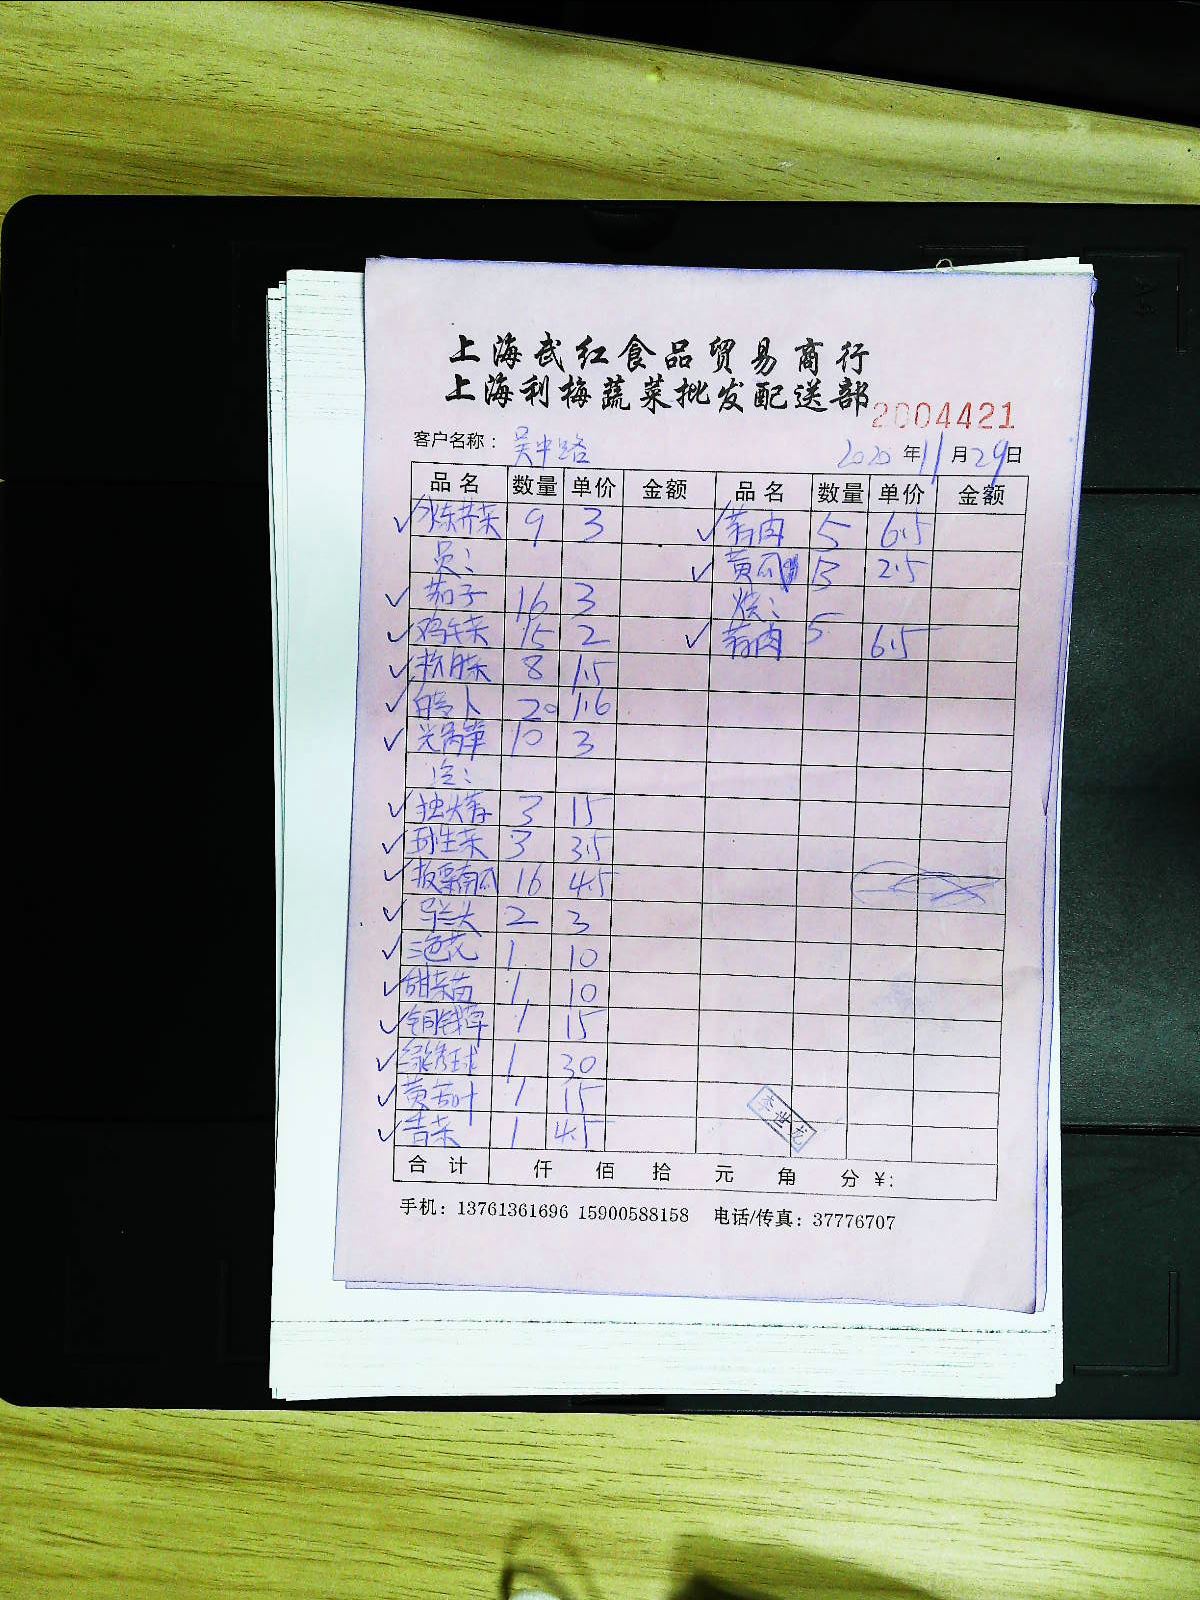 上海武红食品贸易商行
上海利梅蔬菜批发配送部
2004421
客户名称：吴中路 2020年11月29日
品名 数量 单价 金额 品名 数量 单价 金额
冰冻荠菜 9 3 ✓ 5 6.5
员：✓ 黄瓜 2.5
✓ 茄子 16 3 烧：
✓ 鸡毛菜 15 2 ✓ 5 6.5
✓ 8 1.5
✓ 白萝卜 20 1.6
✓ 光莴笋 10 3
✓ 独大蒜 3 15
✓ 生菜 3 3.5
✓ 板栗南瓜 16 4.5
✓ 马兰头 2 3
✓ 三色花 1 10
✓ 甜菜苗 1 10
✓ 铜钱草 1 15
✓ 绿绣球 1 30
✓ 叶 1 15
✓ 1 4.5
李世龙
合计 仟 佰 拾 元 角 分 ¥:
手机：13761361696 15900588158 电话/传真：37776707